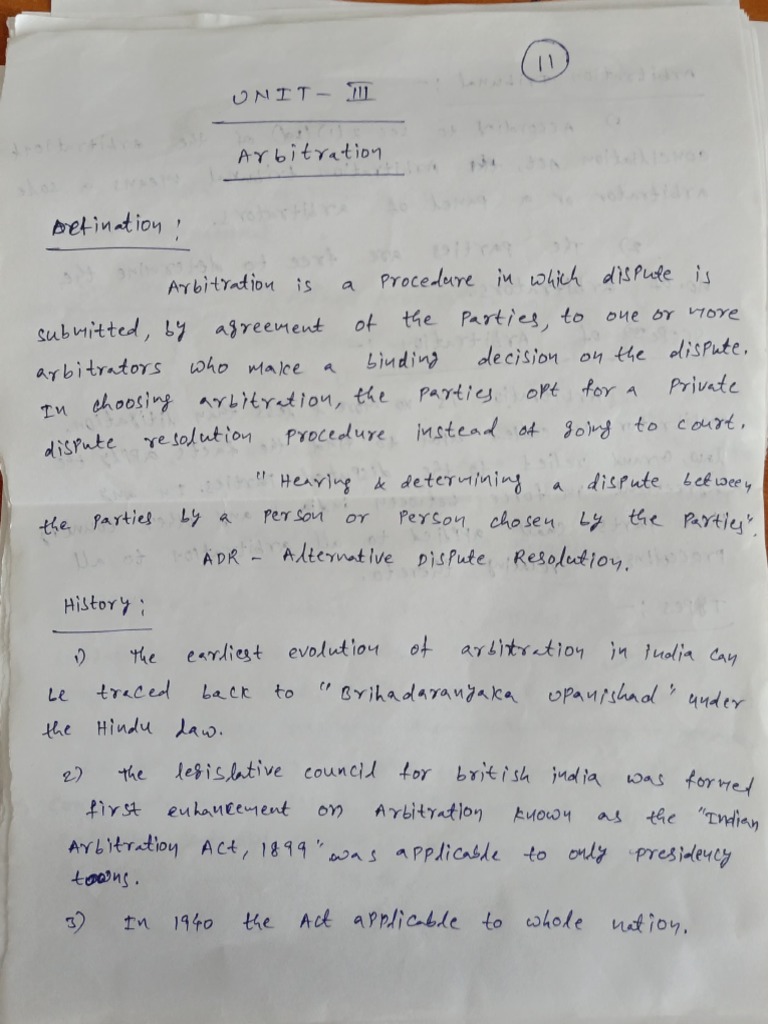 11
UNIT - III
Arbitration
Defination :
Arbitration is a Procedure in which dispute is
submitted, by agreement of the Parties, to one or more
arbitrators who make a binding decision on the dispute.
In choosing arbitration, the parties opt for a Private
dispute resolution procedure instead of going to court.
" Hearing & determining a dispute between
the parties by a person or person chosen by the Parties".
ADR - Alternative Dispute Resolution.
History :
1) The earliest evolution of arbitration in india can
be traced back to "Brihadaranyaka upanishad" under
the Hindu law.
2) The legislative council for british india was formed
first enhancement on Arbitration known as the "Indian
Arbitration Act, 1899" was applicable to only presidency
towns.
3) In 1940 the Act applicable to whole nation.